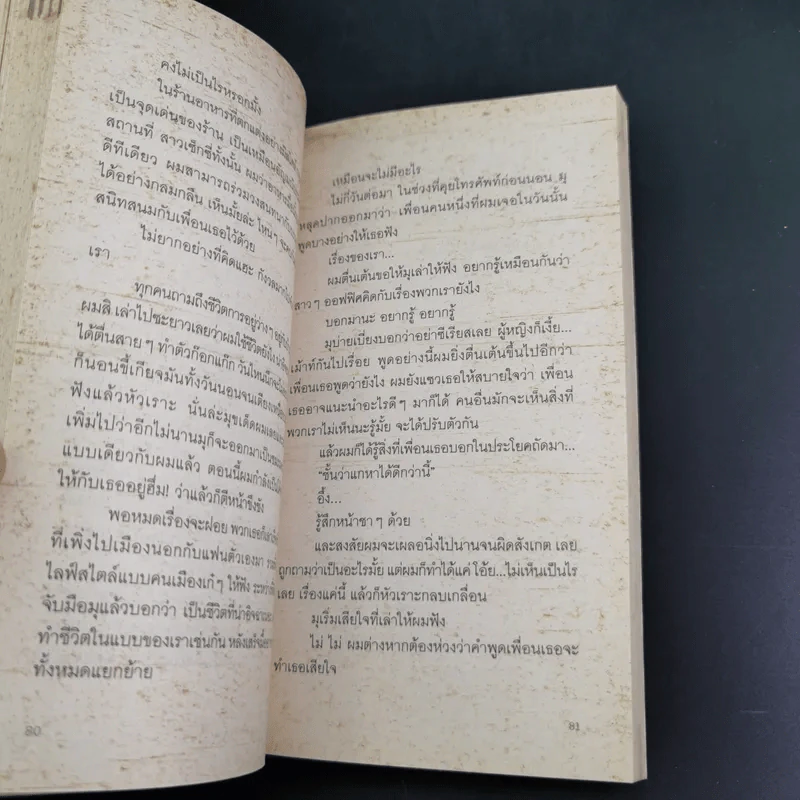 คงไม่เป็นไรหรอกมั้ง
ในร้านอาหารที่ตกแต่งอย่างมีสไตล์
เป็นจุดเด่นของร้าน เป็นเหมือน
สถานที่ สาวเซ็กซี่ทั้งนั้น ผมว่า
ดีทีเดียว ผมสามารถร่วมวงสนทนา
ได้อย่างกลมกลืน เห็นมั้ยล่ะ ไหนๆ
สนิทสนมกับเพื่อนเธอไว้ด้วย
ไม่ยากอย่างที่คิดแฮะ
เรา
ทุกคนถามถึงชีวิตการอยู่ว่างๆ
ผมสิ เล่าไปซะยาวเลยว่าผมใช้ชีวิตยังไง
ได้ตื่นสายๆ ทำตัวก๊อกแก๊ก วันไหนนึก
ก็นอนขี้เกียจมันทั้งวันนอนจนเตียง
ฟังแล้วหัวเราะ นั่นล่ะมุขเด็ดผมเลย
เพิ่มไปว่าอีกไม่นานมุก็จะออกมาเป็น
แบบเดียวกับผมแล้ว ตอนนี้ผมกำลัง
ให้กับเธออยู่ฮึ่ม! ว่าแล้วก็ตีหน้าขึงขัง
พอหมดเรื่องจะฝอย พวกเธอก็
ที่เพิ่งไปเมืองนอกกับแฟนตัวเองมา
ไลฟ์สไตล์แบบคนเมืองเก๋ๆ ให้ฟัง
จับมือมุแล้วบอกว่า เป็นชีวิตที่น่าอิจฉา
ทำชีวิตในแบบของเราเช่นกัน หลังเสร็จ
ทั้งหมดแยกย้าย
80
เหมือนจะไม่มีอะไร
ไม่กี่วันต่อมา ในช่วงที่คุยโทรศัพท์ก่อนนอน มุ
หลุดปากออกมาว่า เพื่อนคนหนึ่งที่ผมเจอในวันนั้น
พูดบางอย่างให้เธอฟัง
เรื่องของเรา...
ผมตื่นเต้นขอให้มุเล่าให้ฟัง อยากรู้เหมือนกันว่า
สาวๆ ออฟฟิศคิดกับเรื่องพวกเรายังไง
บอกม่านะ อยากรู้ อยากรู้
มุบ่ายเบี่ยงบอกว่าอย่าซีเรียสเลย ผู้หญิงก็เงี้ย...
เม้าท์กันไปเรื่อย พูดอย่างนี้ผมยิ่งตื่นเต้นขึ้นไปอีกว่า
เพื่อนเธอพูดว่ายังไง ผมยังแซวเธอให้สบายใจว่า เพื่อน
เธออาจแนะนำอะไรดีๆ มาก็ได้ คนอื่นมักจะเห็นสิ่งที่
พวกเราไม่เห็นนะรู้มั้ย จะได้ปรับตัวกัน
แล้วผมก็ได้รู้สิ่งที่เพื่อนเธอบอกในประโยคถัดมา...
“ชั้นว่าแกหาได้ดีกว่านี้”
อึ้ง...
รู้สึกหน้าชาๆ ด้วย
และสงสัยผมจะเผลอนิ่งไปนานจนผิดสังเกต เลย
ถูกถามว่าเป็นอะไรมั้ย แต่ผมก็ทำได้แค่ โอ้ย...ไม่เห็นเป็นไร
เลย เรื่องแค่นี้ แล้วก็หัวเราะกลบเกลื่อน
มุเริ่มเสียใจที่เล่าให้ผมฟัง
ไม่ ไม่ ผมต่างหากต้องห่วงว่าคำพูดเพื่อนเธอจะ
ทำเธอเสียใจ
81